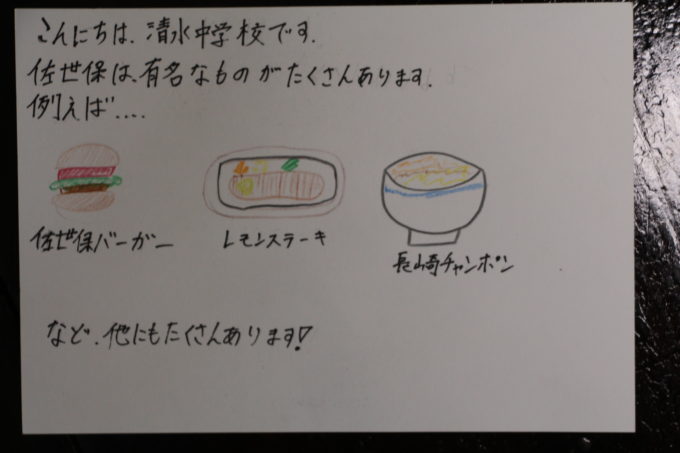 こんにちは、清水中学校です.
佐世保は、有名なものがたくさんあります.
例えば....
佐世保バーガー
レモンステーキ
長崎チャンポン
など、他にもたくさんあります!